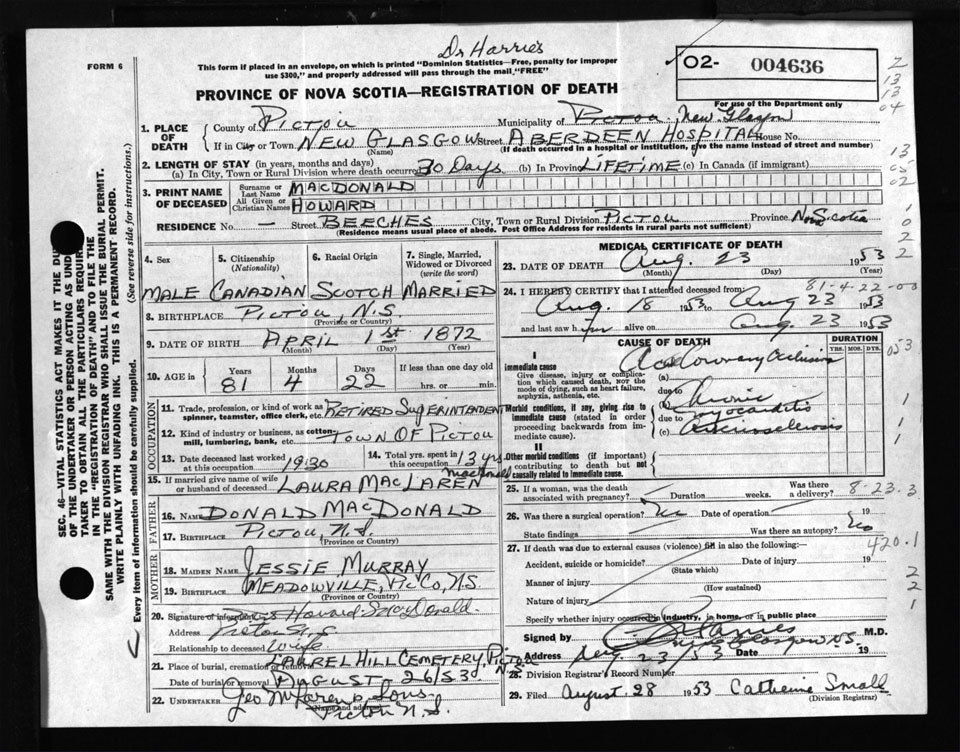 Dr Harries
FORM 6
This form if placed in an envelope, on which is printed "Dominion Statistics—Free, penalty for improper
use $300," and properly addressed will pass through the mail, "FREE"
O2- 004636
For use of the Department only
PROVINCE OF NOVA SCOTIA—REGISTRATION OF DEATH
1. PLACE OF DEATH
County of Pictou Municipality of Pictou New Glasgow
If in City or Town NEW GLASGOW Street ABERDEEN HOSPITAL House No.
(Name) (If death occurred in a hospital or institution, give the name instead of street and number)
2. LENGTH OF STAY (in years, months and days)
(a) In City, Town or Rural Division where death occurred 30 Days (b) In Province LIFETIME (c) In Canada (if immigrant)
3. PRINT NAME OF DECEASED
Surname or Last Name MACDONALD
All Given or Christian Names HOWARD
RESIDENCE No. — Street BEECHES City, Town or Rural Division PICTOU Province N. Scotia
(Residence means usual place of abode. Post Office Address for residents in rural parts not sufficient)
4. Sex 5. Citizenship (Nationality) 6. Racial Origin 7. Single, Married, Widowed or Divorced (write the word)
MALE CANADIAN SCOTCH MARRIED
8. BIRTHPLACE PICTOU, N.S.
(Province or Country)
9. DATE OF BIRTH APRIL 1st 1872
(Month) (Day) (Year)
10. AGE in Years Months Days If less than one day old
81 4 22 hrs. or min.
OCCUPATION
11. Trade, profession, or kind of work as spinner, teamster, office clerk, etc. RETIRED SUPERINTENDENT
12. Kind of industry or business, as cotton-mill, lumbering, bank, etc. TOWN OF PICTOU
13. Date deceased last worked at this occupation 1930
14. Total yrs. spent in this occupation 13 yrs
15. If married give name of wife or husband of deceased LAURA MACLAREN MacDonald
FATHER
16. NAME DONALD MACDONALD
17. BIRTHPLACE PICTOU N.S.
(Province or Country)
MOTHER
18. MAIDEN NAME JESSIE MURRAY
19. BIRTHPLACE MEADOWVILLE, PIC CO, N.S.
(Province or Country)
20. Signature of informant Mrs Howard MacDonald
Address Pictou N.S.
Relationship to deceased Wife
21. Place of burial, cremation or removal LAUREL HILL CEMETERY, PICTOU N.S.
Date of burial or removal AUGUST 26/53
22. UNDERTAKER Geo McLaren Sons
(Name and address)
Pictou N.S.
MEDICAL CERTIFICATE OF DEATH
23. DATE OF DEATH Aug. 23 1953
(Month) (Day) (Year)
81-4-22-00
24. I HEREBY CERTIFY that I attended deceased from:
Aug. 18 1953 Aug 23 1953
and last saw him alive on Aug. 23 1953
CAUSE OF DEATH DURATION
YRS. MOS. DYS.
I
Immediate cause
Give disease, injury or complication which caused death, Not the mode of dying, such as heart failure, asphyxia, asthenia, etc.
(a) Ac Coronary Occlusion
due to
Morbid conditions, if any, giving rise to immediate cause (stated in order proceeding backwards from immediate cause).
(b) Chronic myocarditis
due to
(c) Arteriosclerosis
II
Other morbid conditions (if important) contributing to death but not causally related to immediate cause.
25. If a woman, was the death associated with pregnancy? Duration weeks. Was there a delivery? 8-23.3
26. Was there a surgical operation? no Date of operation 19
State findings Was there an autopsy? No
27. If death was due to external causes (violence) fill in also the following:— 420.1
Accident, suicide or homicide? Date of injury 19
(State which)
Manner of injury
(How sustained)
Nature of injury
Specify whether injury occurred in industry, in home, or in public place
Signed by Harries M.D.
Address New Glasgow N.S.
23/53 Date 19
28. Division Registrar's Record Number
29. Filed August 28 1953 Catherine Small
(Division Registrar)
SEC. 46—VITAL STATISTICS ACT MAKES IT THE DUTY
OF THE UNDERTAKER OR PERSON ACTING AS UNDER-
TAKER TO OBTAIN ALL THE PARTICULARS REQUIRED
IN THE "REGISTRATION OF DEATH" AND TO FILE THE
SAME WITH THE DIVISION REGISTRAR WHO SHALL ISSUE THE BURIAL PERMIT.
WRITE PLAINLY WITH UNFADING INK. THIS IS A PERMANENT RECORD.
Every item of information should be carefully supplied. (See reverse side for instructions.)
2
13
13
04
13
05
02
1
0
2
2
053
1
1
1
2
2
1